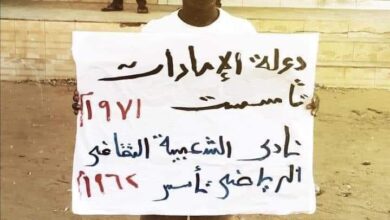 دولة الإمارات
تأسست ١٩٧١م
نادي الشعبية الثقافي
الرياضي تأسس ١٩٦٢م